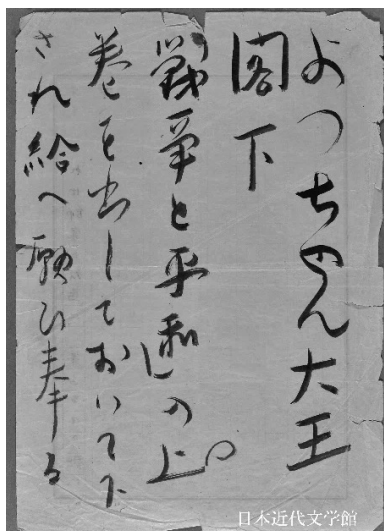 よつちやん大王
閣下
戦争と平和の上
巻を出しておいて下
され給へ願ひ奉る
日本近代文学館